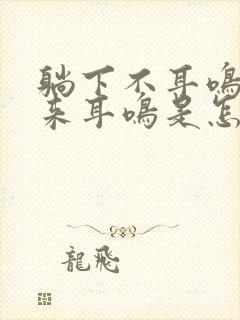 躺下不耳鸣
来耳鸣是怎
龍飛